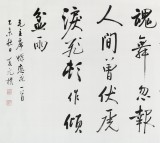 魂舞忽報
人間曾伏虎
淚飛頓作傾
盆雨
毛主席蝶恋花一首